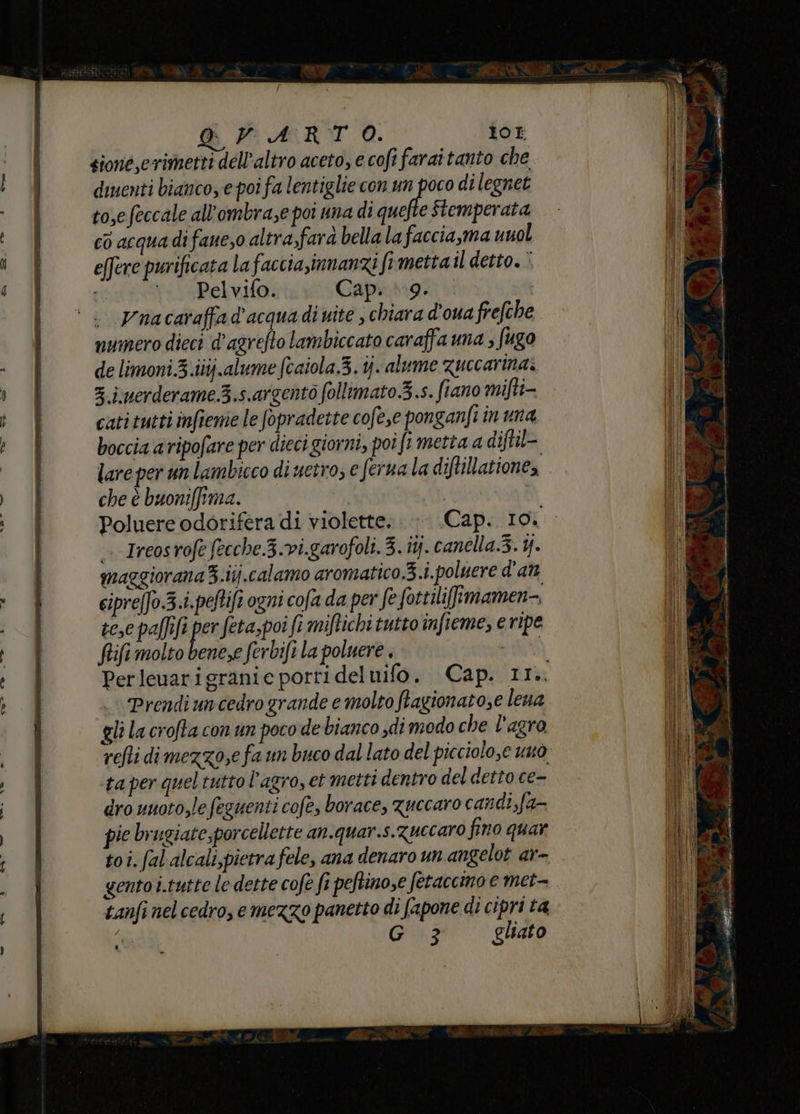 Q V A R T O. 101
sione,e rimetti dell'altro aceto, e cosi farai tanto che
diuenti bianco, e poi fa lentiglie con un poco di legnet
to,e seccale all'ombra,e poi una di queste stemperata
cō acqua di faue,o altra,farà bella la faccia,ma uuol
essere purificata la faccia,innanzi si metta il detto.
Pel viso. Cap. 9.
Vna caraffa d'acqua di uite , chiara d'oua fresche
numero dieci d'agresto lambiccato caraffa una , sugo
de limoni.ʒ.iiij.alume scaiola.ʒ. ij. alume zuccarina.
ʒ.i.uerderame.ʒ.s.argento sollimato.ʒ.s. siano misti-
cati tutti insieme le sopradette cose,e ponganſi in una
boccia a riposare per dieci giorni, poi si metta a distil-
lare per un lambicco di uetro, e serua la distillatione,
che è buonissima.
Poluere odorifera di violette. Cap. 10.
Ireos rose secche.ʒ.vi.garofoli. ʒ. iij. canella.ʒ. ij.
maggiorana ʒ.iij.calamo aromatico.ʒ.i.poluere d'an
cipresso.ʒ.i.pestisi ogni cosa da per se sottilissimamen-
te,e passisi per seta,poi si mistichi tutto insieme, e ripe
stisi molto bene,e serbisi la poluere .
Per leuar i grani e porri del uiso. Cap. 11.
Prendi un cedro grande e molto stagionato,e leua
gli la crosta con un poco de bianco ,di modo che l'agro
resti di mezzo,e fa un buco dal lato del picciolo,e uuo
ta per quel tutto l'agro, et metti dentro del detto ce-
dro uuoto,le seguenti cose, borace, zuccaro candi,sa-
pie brugiate,porcellette an.quar.s.zuccaro fino quar
to i. sal alcali,pietra fele, ana denaro un.angelot ar-
gento i.tutte le dette cose si pestino,e setaccino e met-
tansi nel cedro, e mezzo panetto di sapone di cipri ta
G 3 gliato